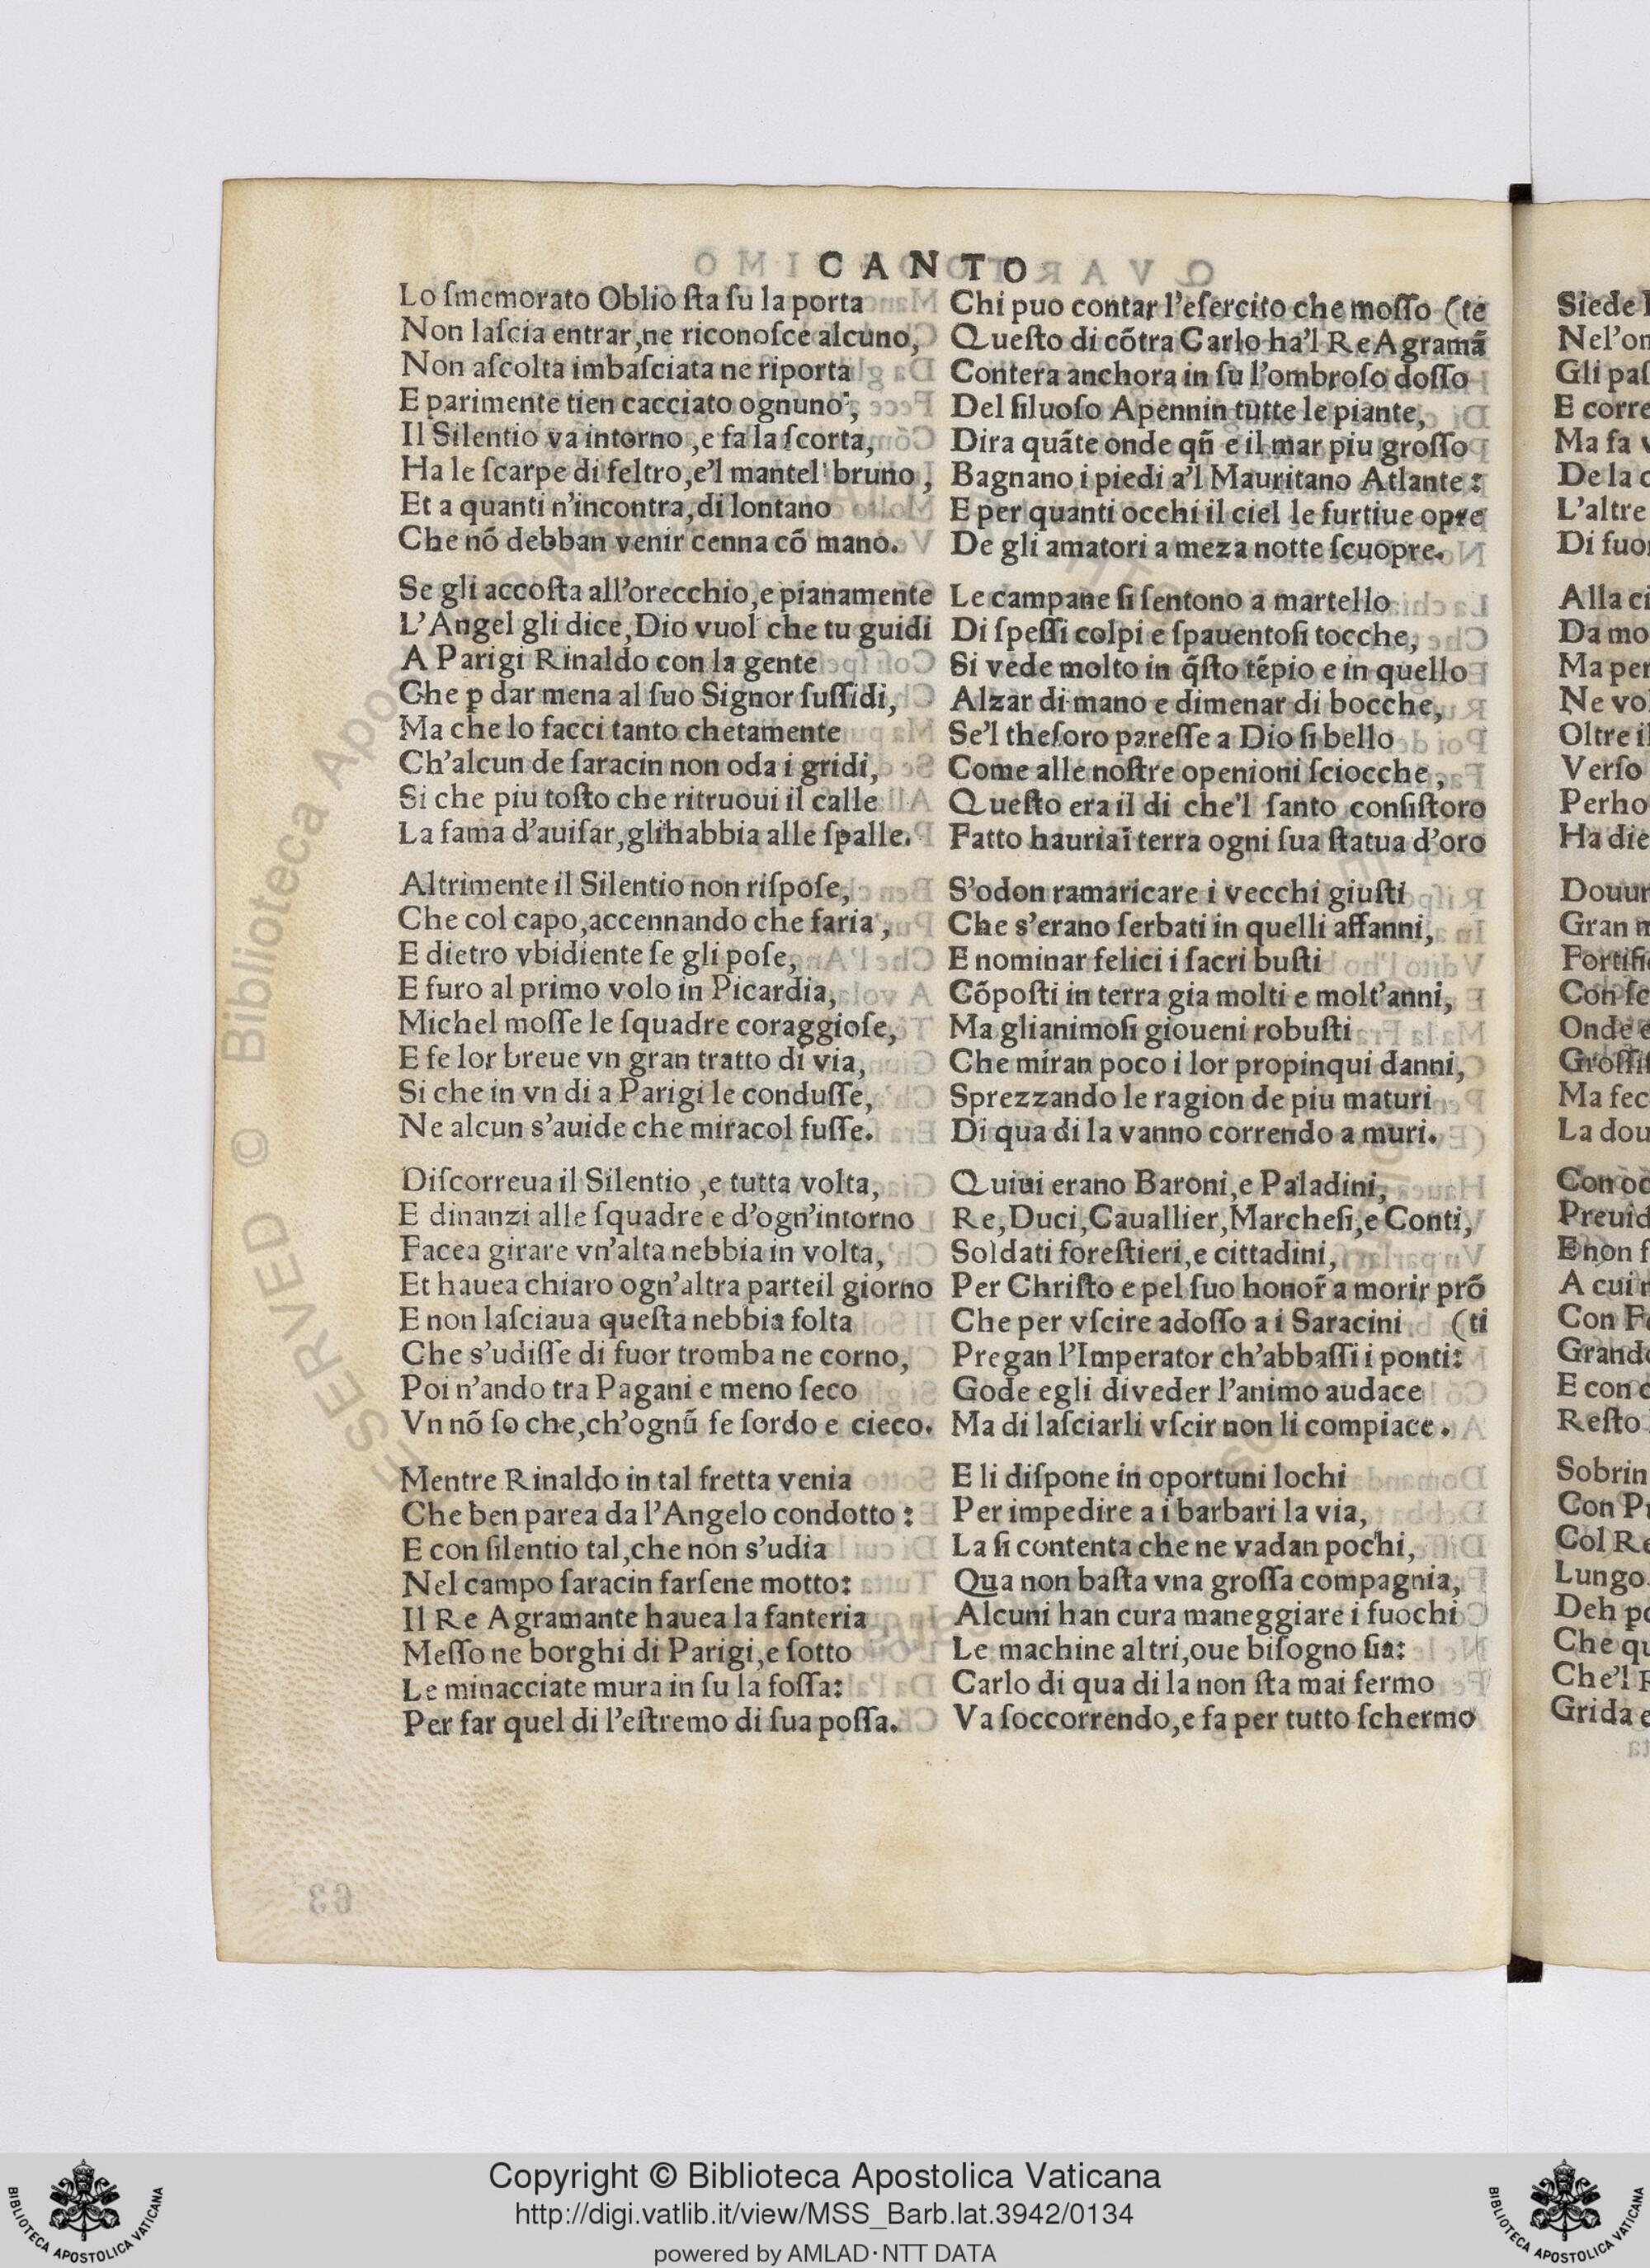 CANTO
Lo ſmemorato Oblio ſta ſu la porta
Non laſcia entrar, ne riconoſce alcuno,
Non aſcolta imbaſciata ne riporta
E parimente tien cacciato ognuno,
Il Silentio va intorno, e fa la ſcorta,
Ha le ſcarpe di feltro, e'l mantel bruno,
Et a quanti n'incontra, di lontano
Che nõ debban venir cenna cõ mano.
Se gli accoſta all'orecchio, e pianamente
L'Angel gli dice, Dio vuol che tu guidi
A Parigi Rinaldo con la gente
Che ꝑ dar mena al ſuo Signor ſuſſidi,
Ma che lo facci tanto chetamente
Ch'alcun de ſaracin non oda i gridi,
Si che piu toſto che ritruoui il calle
La fama d'auiſar, glihabbia alle ſpalle.
Altrimente il Silentio non riſpoſe,
Che col capo, accennando che faria,
E dietro vbidiente ſe gli poſe,
E furo al primo volo in Picardia,
Michel moſſe le ſquadre coraggioſe,
E fe lor breue vn gran tratto di via,
Si che in vn di a Parigi le conduſſe,
Ne alcun s'auide che miracol fuſſe.
Diſcorreua il Silentio, e tutta volta,
E dinanzi alle ſquadre e d'ogn'intorno
Facea girare vn'alta nebbia in volta,
Et hauea chiaro ogn'altra parteil giorno
E non laſciaua queſta nebbia folta
Che s'udiſſe di fuor tromba ne corno,
Poi n'ando tra Pagani e meno ſeco
Vn nõ ſo che, ch'ognũ fe ſordo e cieco.
Mentre Rinaldo in tal fretta venia
Che ben parea da l'Angelo condotto:
E con ſilentio tal, che non s'udia
Nel campo ſaracin farſene motto:
Il Re Agramante hauea la fanteria
Meſſo ne borghi di Parigi, e ſotto
Le minacciate mura in ſu la foſſa:
Per far quel di l'eſtremo di ſua poſſa.
Chi puo contar l'eſercito che moſſo (te
Queſto di cõtra Carlo ha'l Re Agramã
Contera anchora in ſu l'ombroſo doſſo
Del ſiluoſo Apennin tutte le piante,
Dira quãte onde qñ e il mar piu groſſo
Bagnano i piedi a'l Mauritano Atlante:
E per quanti occhi il ciel le furtiue opre
De gli amatori a meza notte ſcuopre.
Le campane ſi ſentono a martello
Di ſpeſſi colpi e ſpauentoſi tocche,
Si vede molto in q̃ſto tẽpio e in quello
Alzar di mano e dimenar di bocche,
Se'l theſoro pareſſe a Dio ſi bello
Come alle noſtre openioni ſciocche,
Queſto era il di che'l ſanto conſiſtoro
Fatto hauria ĩ terra ogni ſua ſtatua d'oro
S'odon ramaricare i vecchi giuſti
Che s'erano ſerbati in quelli affanni,
E nominar felici i ſacri buſti
Cõpoſti in terra gia molti e molt'anni,
Ma glianimoſi gioueni robuſti
Che miran poco i lor propinqui danni,
Sprezzando le ragion de piu maturi
Di qua di la vanno correndo a muri.
Quiui erano Baroni, e Paladini,
Re, Duci, Cauallier, Marcheſi, e Conti,
Soldati foreſtieri, e cittadini,
Per Chriſto e pel ſuo honor̃ a morir prõ
Che per vſcire adoſſo a i Saracini (ti
Pregan l'Imperator ch'abbaſſi i ponti:
Gode egli di veder l'animo audace
Ma di laſciarli vſcir non li compiace.
E li diſpone in oportuni lochi
Per impedire a i barbari la via,
La ſi contenta che ne vadan pochi,
Qua non baſta vna groſſa compagnia,
Alcuni han cura maneggiare i fuochi
Le machine altri, oue biſogno ſia:
Carlo di qua di la non ſta mai fermo
Va ſoccorrendo, e fa per tutto ſchermo
Siede
Nel'on
Gli paſ
E corre
Ma fa
De la
L'altre
Di fuo
Alla ci
Da mo
Ma per
Ne vo
Oltre il
Verſo
Perho
Ha die
Douur
Gran
Fortifi
Con ſc
Onde e
Groſſi
Ma fec
La dou
Con oc
Preuid
E non
A cui
Con Fe
Grand
E con
Reſto
Sobrin
Con
Col Re
Lungo
Deh
Che qu
Che'l
Grida
63
RESERVED © Biblioteca Apos
Copyright © Biblioteca Apostolica Vaticana
http://digi.vatlib.it/view/MSS_Barb.lat.3942/0134
powered by AMLAD·NTT DATA
BIBLIOTECA APOSTOLICA VATICANA
BIBLIOTECA APOSTOLICA VATICANA